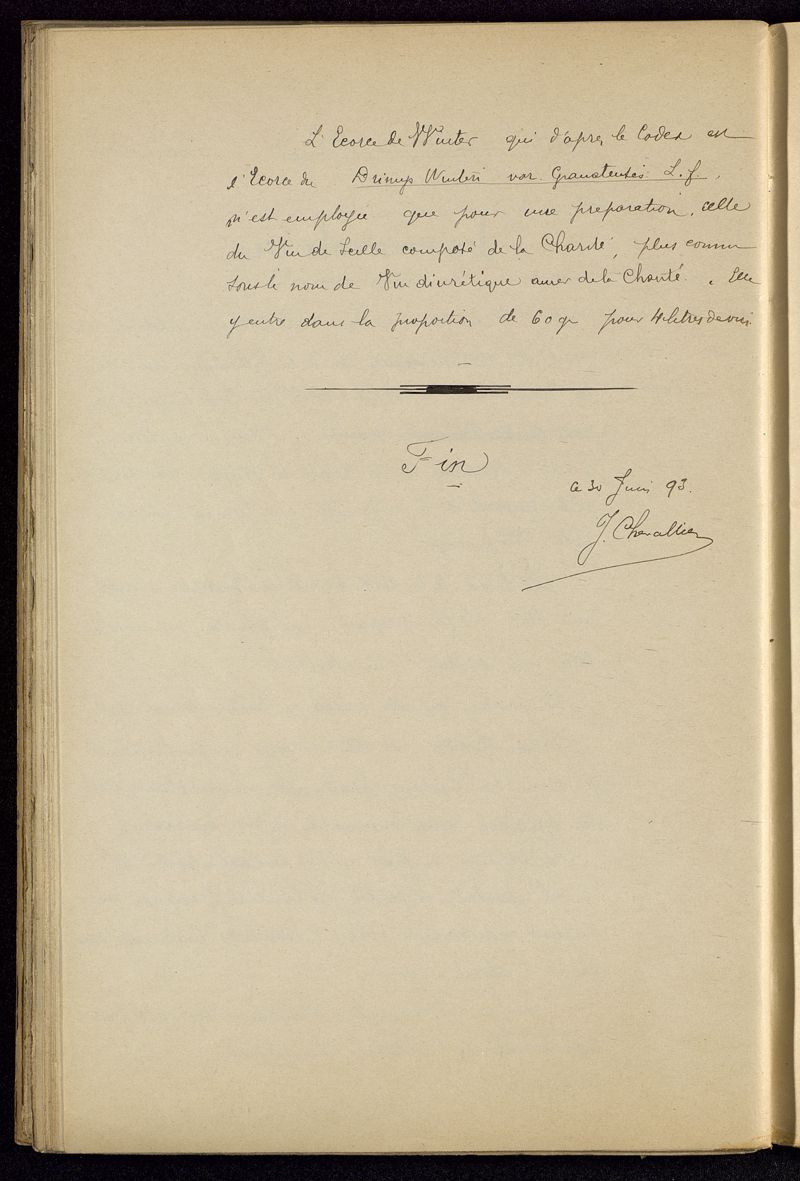 L'Ecorce de Winter qui d'après le Codex est
l'Ecorce du Drimys Winteri var. Granatensis L. f.,
n'est employée que pour une preparation, celle
du Vin de Scille composé de la Charité, plus connu
sous le nom de Vin diurétique amer de la Charité. Elle
y entre dans la proportion de 60 gr pour 4 litres de vin.
Fin
Ce 30 Juin 93.
J. Chevallier